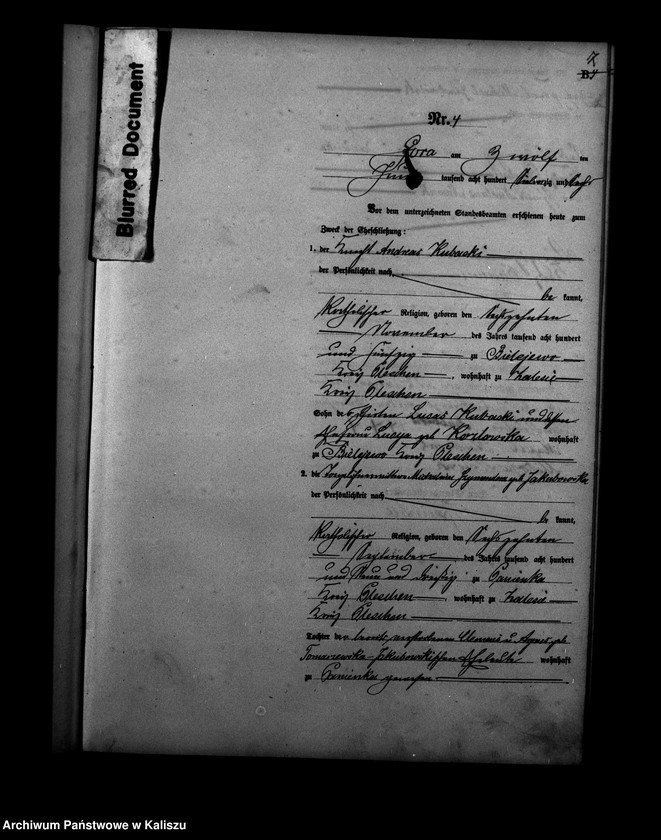 7
B.
Blurred Document
Nr. 4
Gora am Zwölf ten
tausend acht hundert
Vor dem unterzeichneten Standesbeamten erschienen heute zum
Zweck der Eheschließung:
1. der Knecht Andreas Kubacki
der Persönlichkeit nach
be kannt,
Katholischer Religion, geboren den Sechszehnten
November des Jahres tausend acht hundert
und fünfzig zu
Kreis Pleschen, wohnhaft zu Zalesie
Kreis Pleschen
Sohn des Hirten Lucas Kubacki und dessen
Ehefrau Lucya geb Kozlowska wohnhaft
zu Kreis Pleschen
2. die geb Jakubowska
der Persönlichkeit nach
be kannt,
Katholischer Religion, geboren den Sechszehnten
September des Jahres tausend acht hundert
und Neun und dreißig zu Panienka
Kreis Pleschen, wohnhaft zu Zalesie
Kreis Pleschen
Tochter der bereits verstorbenen u. Agnes geb
Tomaszewska Eheleute wohnhaft
zu Panienka gewesen
Archiwum Państwowe w Kaliszu